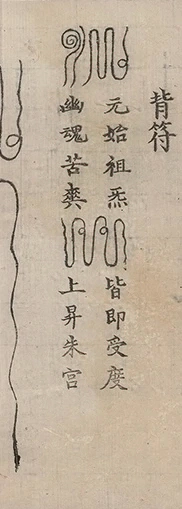 背符
元始祖炁
皆即受度
幽魂苦爽
上昇朱宫